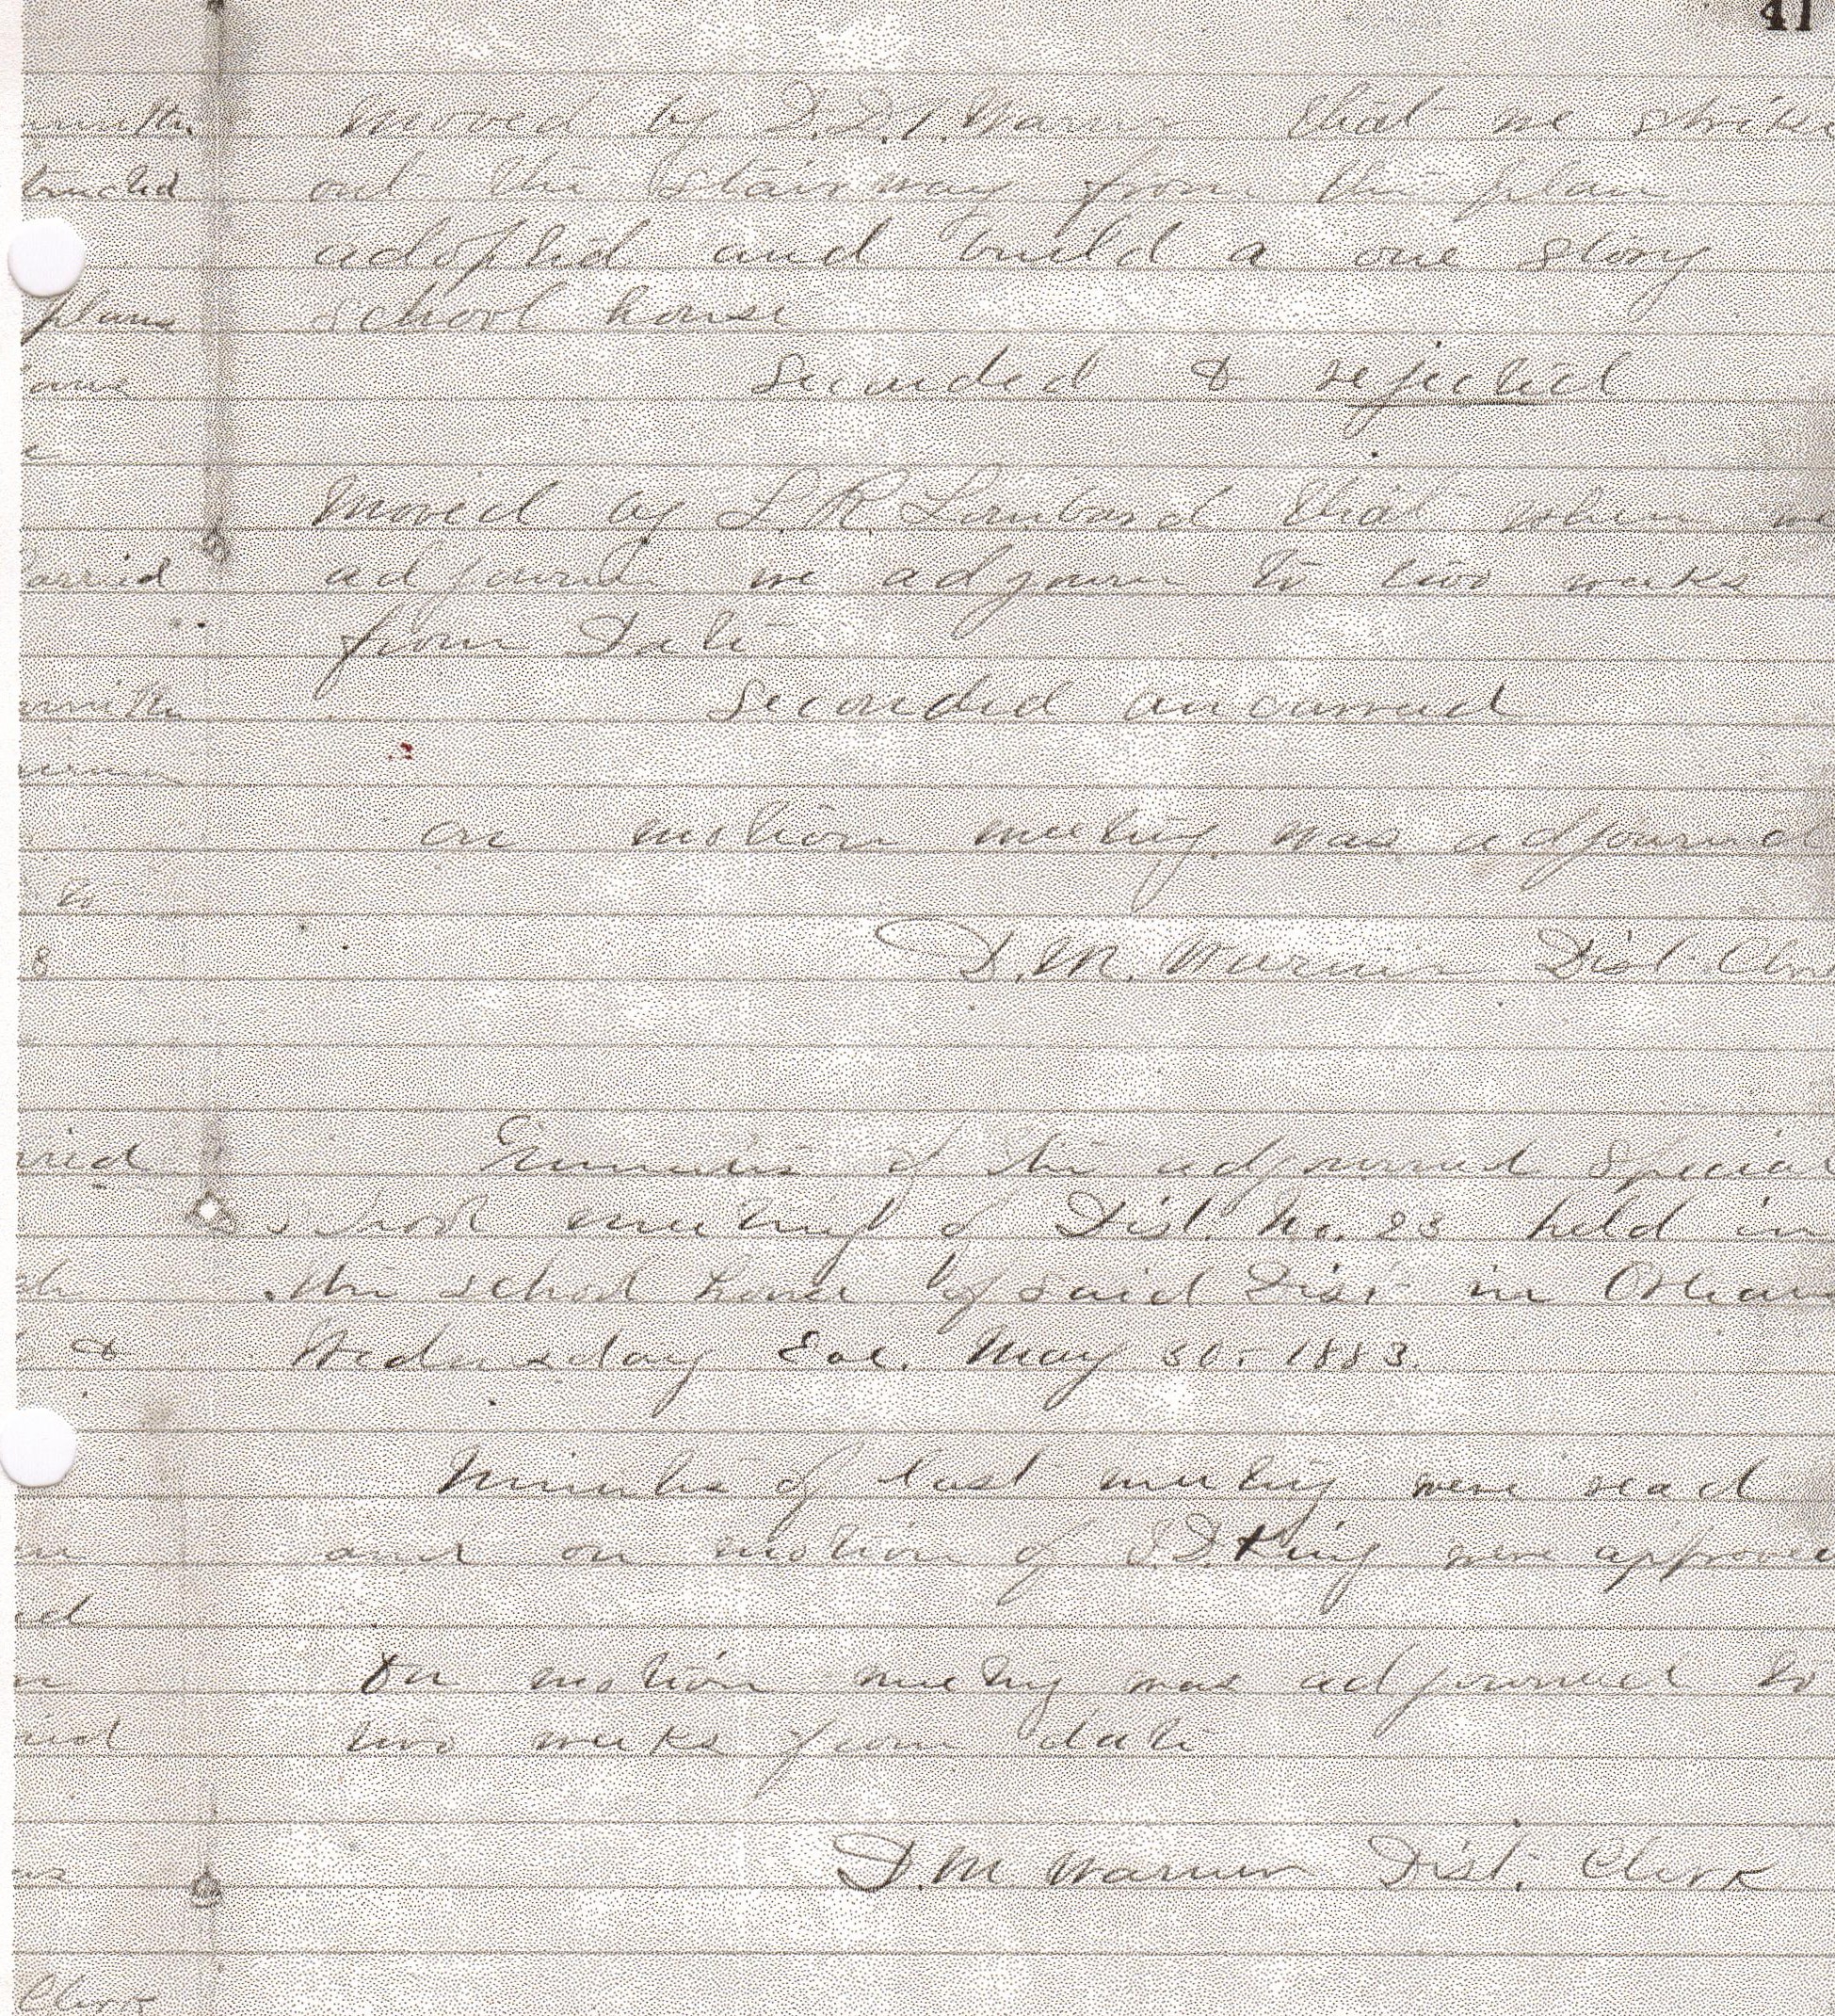 41
Moved by D.D.T. Warner that we strike
out the stairway from the plan
adopted and build a one story
school house
seconded & rejected
Moved by L.R. Lombard that when we
adjourn we adjourn to two weeks
from Date
seconded an carried
on motion meeting was adjourned
D.M. Warner Dist. Clerk
of the adjourned Special
school meeting of Dist. No. 23 held in
the school house of said Dist in Orleans
Wednesday Eve. May 30 - 1883.
Minutes of last meeting were read
and on motion of S.D. King were approved
On motion meeting was adjourned to
two weeks from date
D.M. Warner Dist. Clerk
plans
carried
to
8
&
Clerk